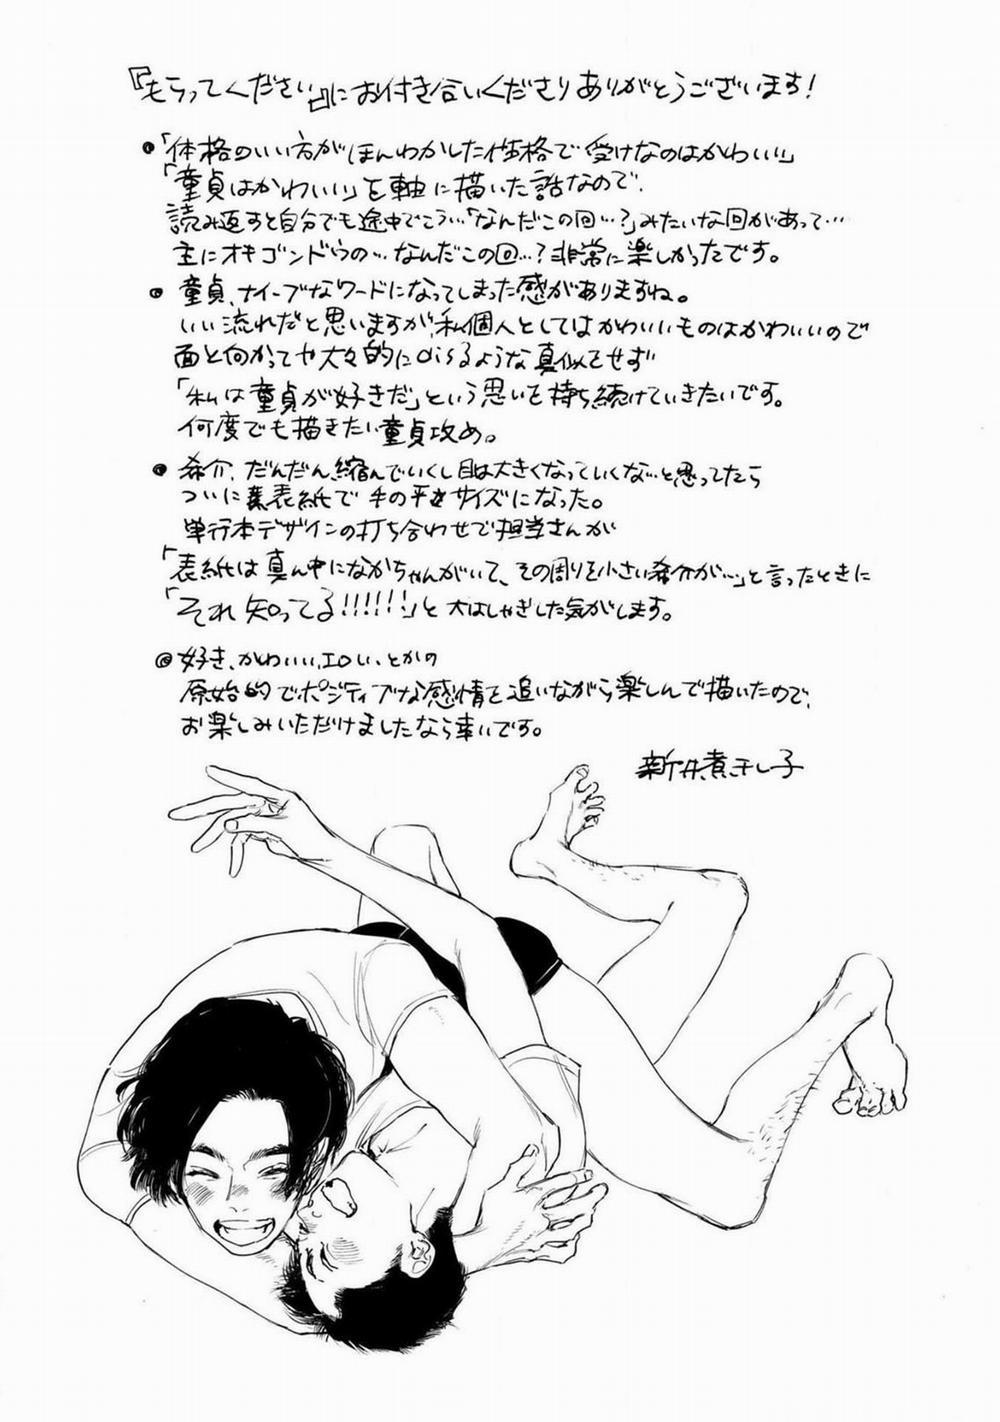 『もらってください』にお付き合いくださりありがとうございます!
●「体格のいい方がほんわかした性格で受けなのはかわいい」
「童貞はかわいい」を軸に描いた話なので、
読み返すと自分でも途中でこう…「なんだこの回…?」みたいな回があって…
主にオキゴンドウの…なんだこの回…?非常に楽しかったです。
●童貞、ナイーブなワードになってしまった感がありますね。
いい流れだと思いますが、私個人としてはかわいいものはかわいいので
面と向かってや大々的にdisるような真似はせず
「私は童貞が好きだ」という思いを持ち続けていきたいです。
何度でも描きたい童貞攻め。
●希介、だんだん縮んでいくし目は大きくなっていくな…と思ってたら
ついに裏表紙で手の平サイズになった。
単行本デザインの打ち合わせで担当さんが
「表紙は真ん中になかちゃんがいて、その周りを小さい希介が…」と言ったときに
「それ知ってる!!!!!!」と大はしゃぎした気がします。
●好き、かわいい、エロい、とかの
原始的でポジティブな感情を追いながら楽しんで描いたので、
お楽しみいただけましたなら幸いです。
新井煮干し子